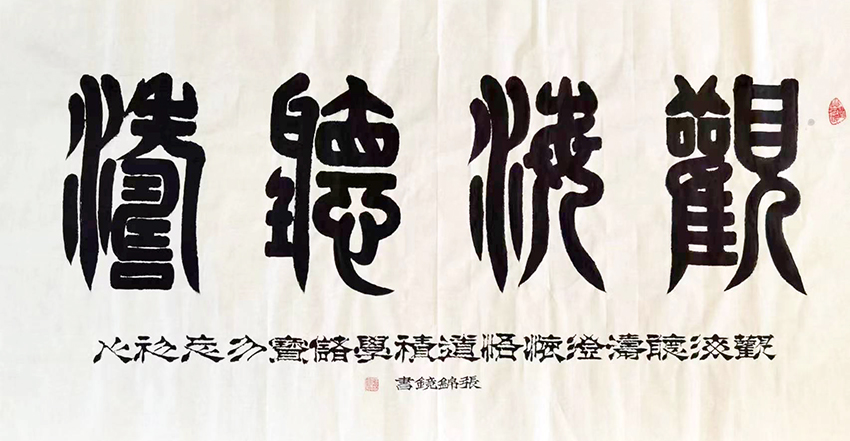 觀海聽濤
觀海聽濤澄懷悟道積學儲寶勿忘初心
張錦鏡書